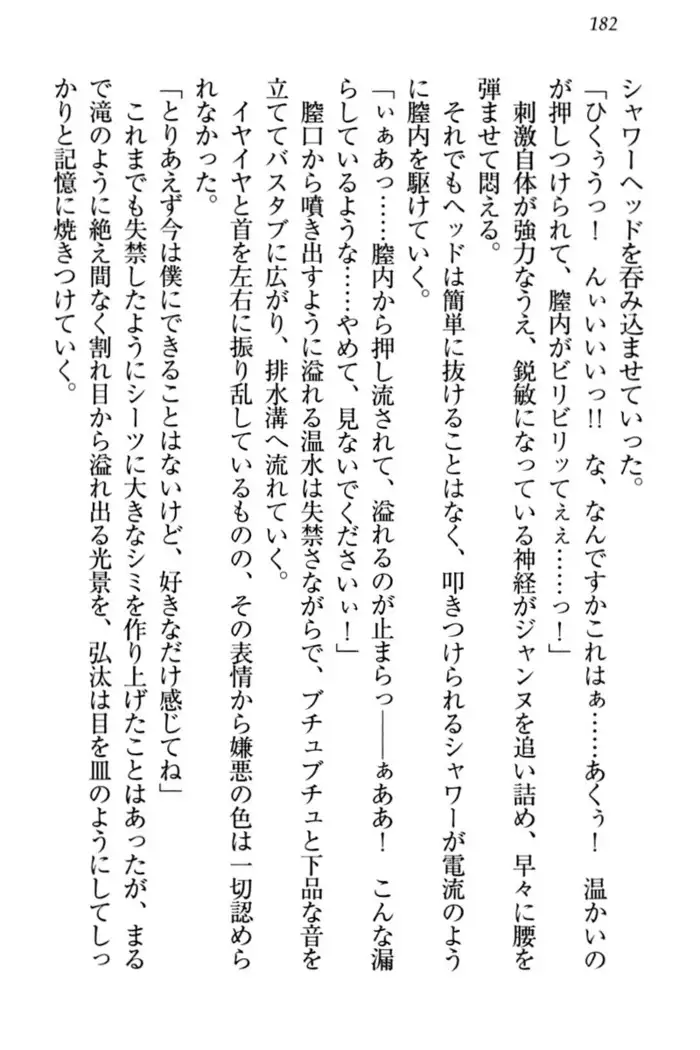 182
シャワーヘッドを呑み込ませていった。
「ひくぅうっ！　んぃいいいっ!!　な、なんですかこれはぁ……あくぅ！　温かいの
が押しつけられて、膣内がビリビリッてぇぇ……っ！」
刺激自体が強力なうえ、鋭敏になっている神経がジャンヌを追い詰め、早々に腰を
弾ませて悶える。
それでもヘッドは簡単に抜けることはなく、叩きつけられるシャワーが電流のよう
に膣内を駆けていく。
「いぁあっ……膣内から押し流されて、溢れるのが止まらっ――ぁああ！　こんな漏
らしているような……やめて、見ないでくださいぃ！」
膣口から噴き出すように溢れる温水は失禁さながらで、ブチュブチュと下品な音を
立ててバスタブに広がり、排水溝へ流れていく。
イヤイヤと首を左右に振り乱しているものの、その表情から嫌悪の色は一切認めら
れなかった。
「とりあえず今は僕にできることはないけど、好きなだけ感じてね」
これまでも失禁したようにシーツに大きなシミを作り上げたことはあったが、まる
で滝のように絶え間なく割れ目から溢れ出る光景を、弘汰は目を皿のようにしてしっ
かりと記憶に焼きつけていく。